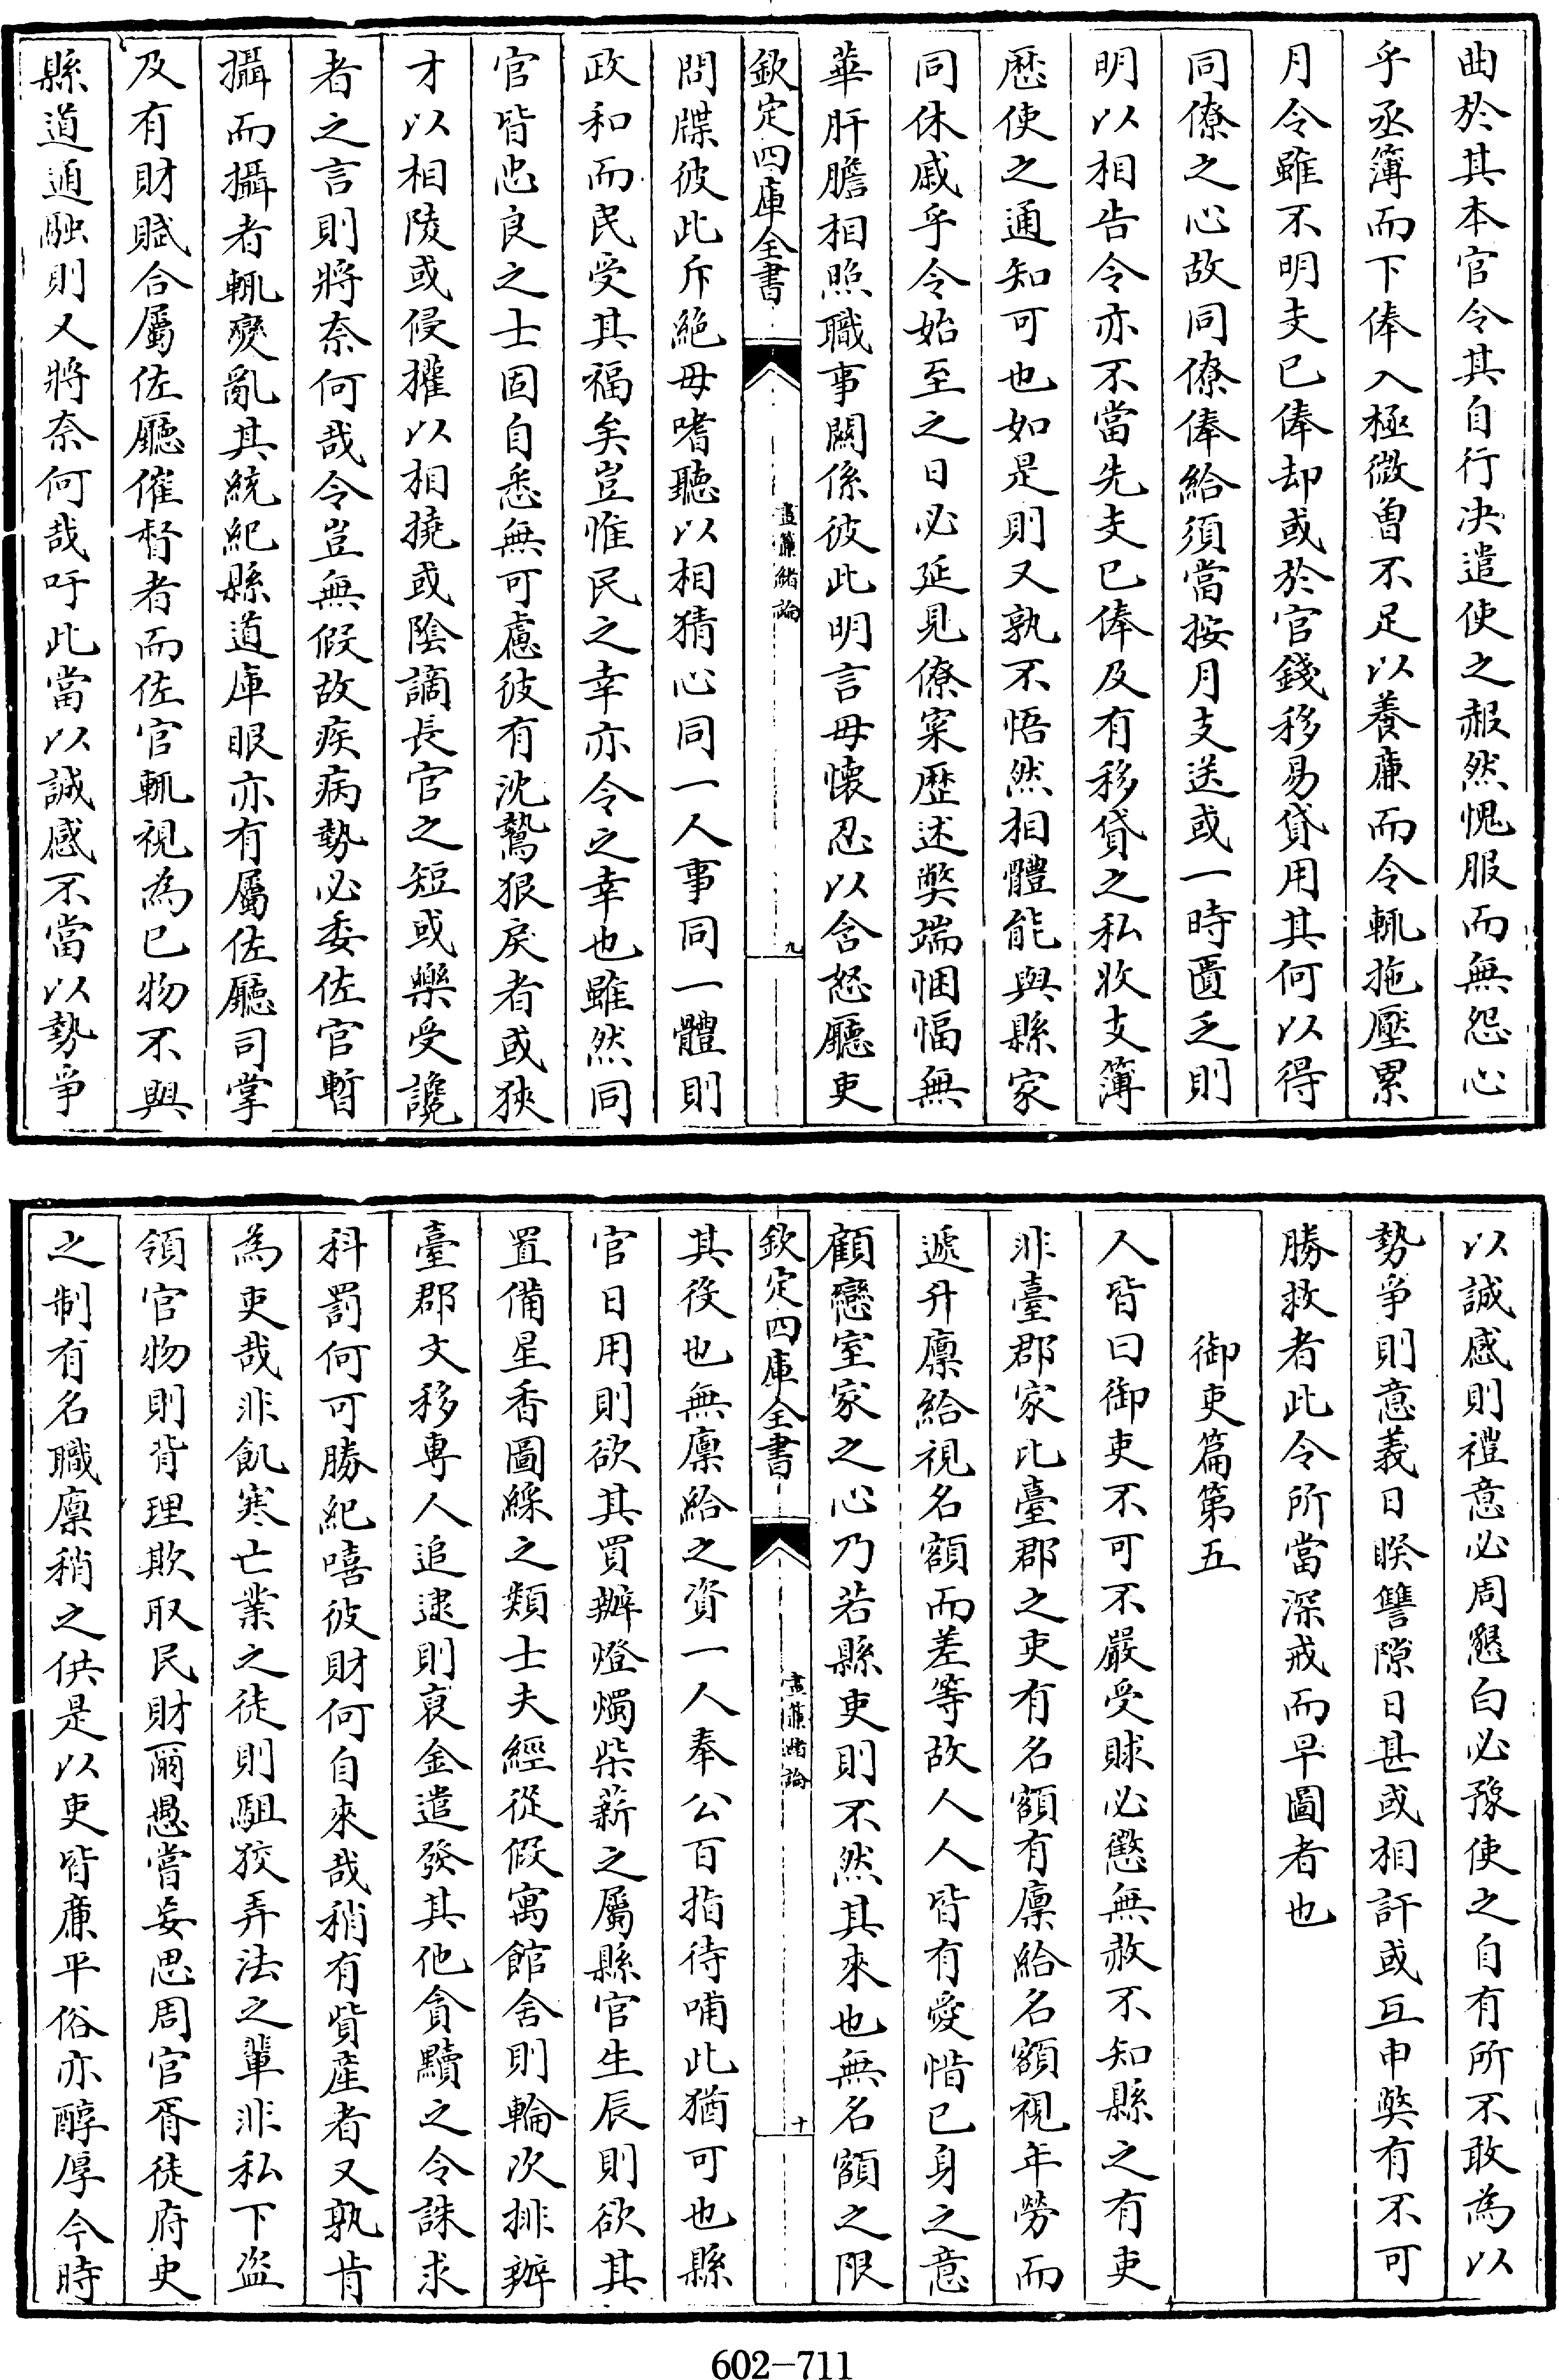 曲於其本官令其自行決遣使之赧然愧服而無怨心
乎丞簿而下俸入極微曽不足以養廉而令輒拖壓累
月令雖不明支已俸却或於官錢移易貸用其何以得
同僚之心故同僚俸給須當按月支送或一時匱乏則
明以相告令亦不當先支已俸及有移貸之私收支簿
歴使之通知可也如是則又孰不悟然相體能與縣家
同休戚乎令始至之日必延見僚寀歴述弊端悃愊無
華肝膽相照職事闗係彼此明言毋懐忍以含怒廳吏
欽定四庫全書
晝簾緒論
九
問牒彼此斥絶毋嗜聽以相猜心同一人事同一體則
政和而民受其福矣豈惟民之幸亦令之幸也雖然同
官皆忠良之士固自悉無可慮彼有沈鷙狠戾者或狹
才以相陵或侵權以相撓或陰謫長官之短或樂受讒
者之言則將奈何哉令豈無假故疾病勢必委佐官暫
攝而攝者輒變亂其統紀縣道庫眼亦有屬佐廳司掌
及有財賦合屬佐廳催督者而佐官輒視為已物不與
縣道通融則又將奈何哉吁此當以誠感不當以勢爭
以誠感則禮意必周懇白必豫使之自有所不敢為以
勢爭則意義日暌讐隙日甚或相訐或互申弊有不可
勝救者此令所當深戒而早圖者也
御吏篇第五
人皆曰御吏不可不嚴受賕必懲無赦不知縣之有吏
非臺郡家比臺郡之吏有名額有廩給名額視年勞而
遞升廩給視名額而差等故人人皆有愛惜已身之意
顧戀室家之心乃若縣吏則不然其來也無名額之限
欽定四庫全書
晝簾緒論
十
其役也無廩給之資一人奉公百指待哺此猶可也縣
官日用則欲其買辦燈燭柴薪之屬縣官生辰則欲其
置備星香圖綵之類士夫經從假寓館舍則輪次排辦
臺郡文移專人追逮則裒金遣發其他貪黷之令誅求
科罰何可勝紀嘻彼財何自來哉稍有貲産者又孰肯
為吏哉非飢寒亡業之徒則駔狡弄法之輩非私下盜
領官物則背理欺取民財爾愚嘗妄思周官胥徒府史
之制有名職廩稍之供是以吏皆廉平俗亦醇厚今時
602-711